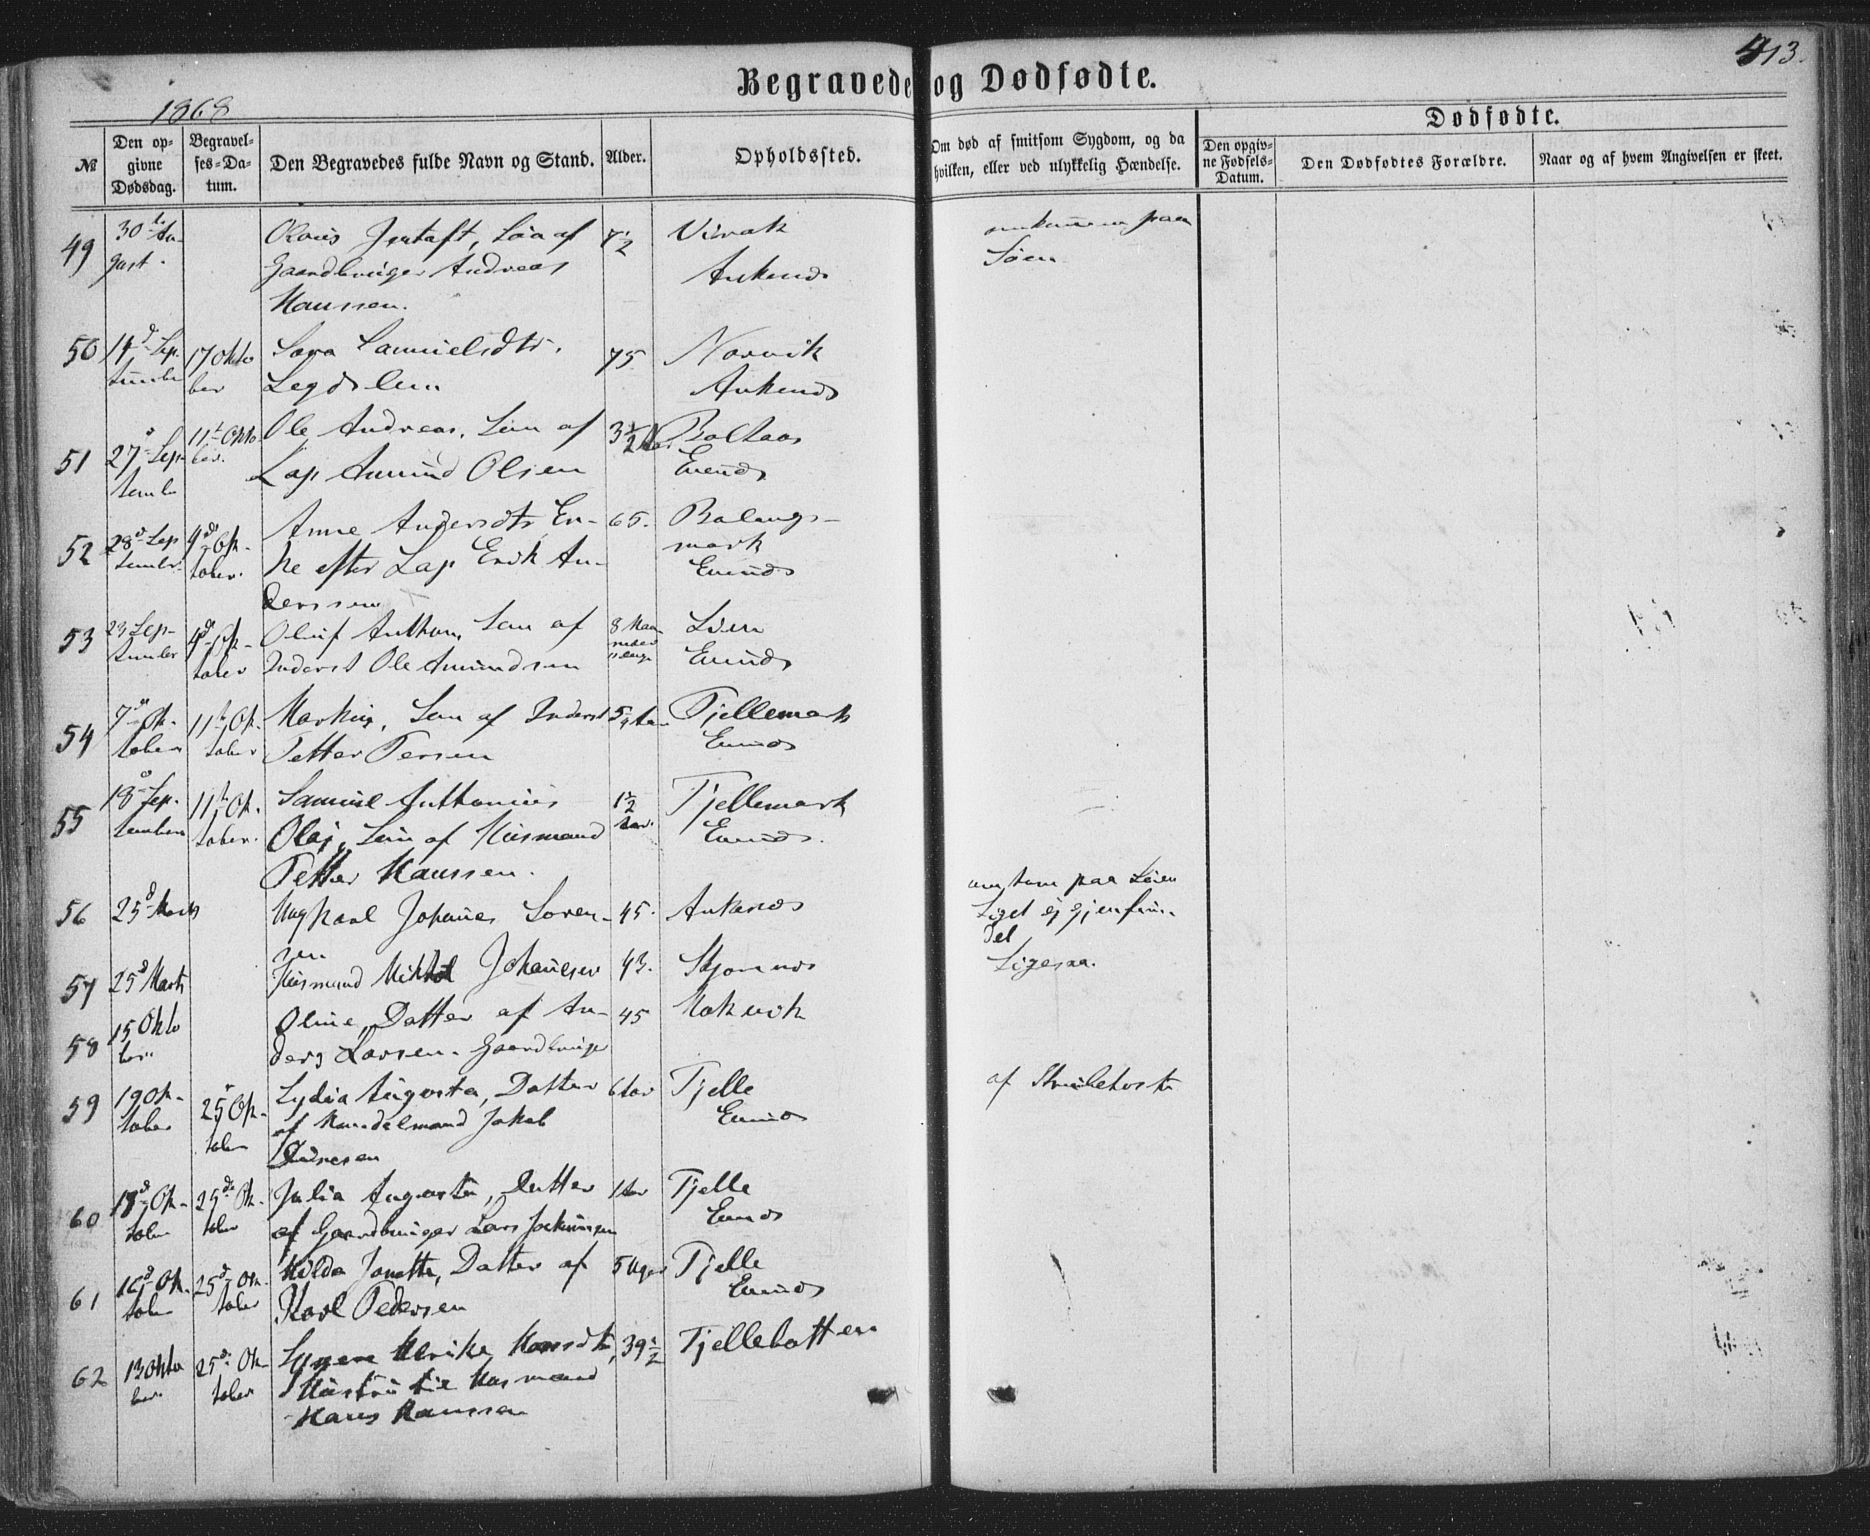 413.
Begravede og Dødfødte.
1868
№
Den opgivne Dødsdag.
Begravelses-Datum.
Den Begravedes fulde Navn og Stand.
Alder.
Opholdssted.
Om død af smitsom Sygdom, og da hvilken, eller ved ulykkelig Hændelse.
Dødfødte.
Den opgivne Fødsels-Datum.
Den Dødfødtes Forældre.
Naar og af hvem Angivelsen er skeet.
49
30te Au-
gust.
Søn af
Gaardbruger Andreas
Hanssen.
7½
Ankenes
omkommen paa
Søen
50
14d Sep-
tember
17 Okto
ber
Sara Samuelsdtr.
Legdslem
75
Narvik
Ankenes
51
27d Sep-
tembr
11t Okto
ber.
Ole Andreas, Søn af
Lap Amund Olsen
3½ Aar
Boltaas
Evenes
52
28d Sep
tembr.
4de Ok-
tober.
Anne Andersdtr En-
ke efter Lap Erik An-
derssen
65.
Balangs-
mark
Evenes
53
23 Sep-
tember
4de Ok-
tober
Oluf Anthon, Søn af
Inderst Ole Amundsen
8 Maa
neder
Liien
Evenes
54
7de Ok-
tober
11te Ok-
tober
Søn af Inderst
Petter Persen
Tjellemark
Evenes
55
18d Sep-
tember
11te Ok-
tober.
Samuel Anthonius
Olaj, Søn af Husmand
Petter Hanssen.
1½
Aar.
Tjellemark
Evenes.
56
25d Marts
Ungkarl Johannes Soren-
sen
45.
Ankenes
omkom paa Søen
Liget ej gjenfun-
det
57
25d Marts
Husmand Mikkel Johannesen
43.
Skjomnes
Ligesaa.
58
15 Okto
ber
Oline, Datter af An-
ders Larsen. Gaardbruger
45
59
19 Ok-
tober
25 Ok-
tober
Lydia Augusta, Datter
af Handelsmand Jakob
Andresen
6 Aar
Tjelle
Evenes
af Strubehoste
60
18d Ok-
tober
25de Ok-
tober
Julia Augusta, Datter
af Gaardbruger Lars Jochumsen
1 Aar
Tjelle
Evenes
61
16d Ok-
tober
25d Ok-
tober
Hilda Janette, Datter af
Karl Pedersen
5 Uger
Tjelle
Evenes
62
13 Okto
ber
25d Ok-
tober
Ulrike Hansdtr,
Hustru til Husmand
Hans Hanssen
39½
Tjellebotten